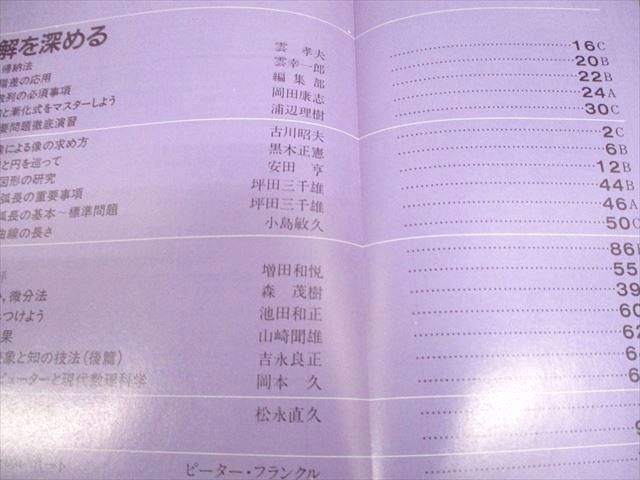 解を深める
帰納法 雲 孝夫 16C
階差の応用 雲幸一郎 20B
数列の必須事項 編集部 22B
と漸化式をマスターしよう 岡田康志 24A
要問題徹底演習 浦辺理樹 30C
による像の求め方 古川昭夫 2C
と円を巡って 黒木正憲 6B
図形の研究 安田 亨 12B
弧長の重要事項 坪田三千雄 44B
弧長の基本〜標準問題 坪田三千雄 46A
曲線の長さ 小島敏久 50C
86
増田和悦 55
,微分法 森 茂樹 39
つけよう 池田和正 60
果 山崎聞雄 62
象と知の技法(後篇) 吉永良正 6
ピューターと現代数理科学 岡本 久 6
松永直久
9
ポート ピーター・フランクル